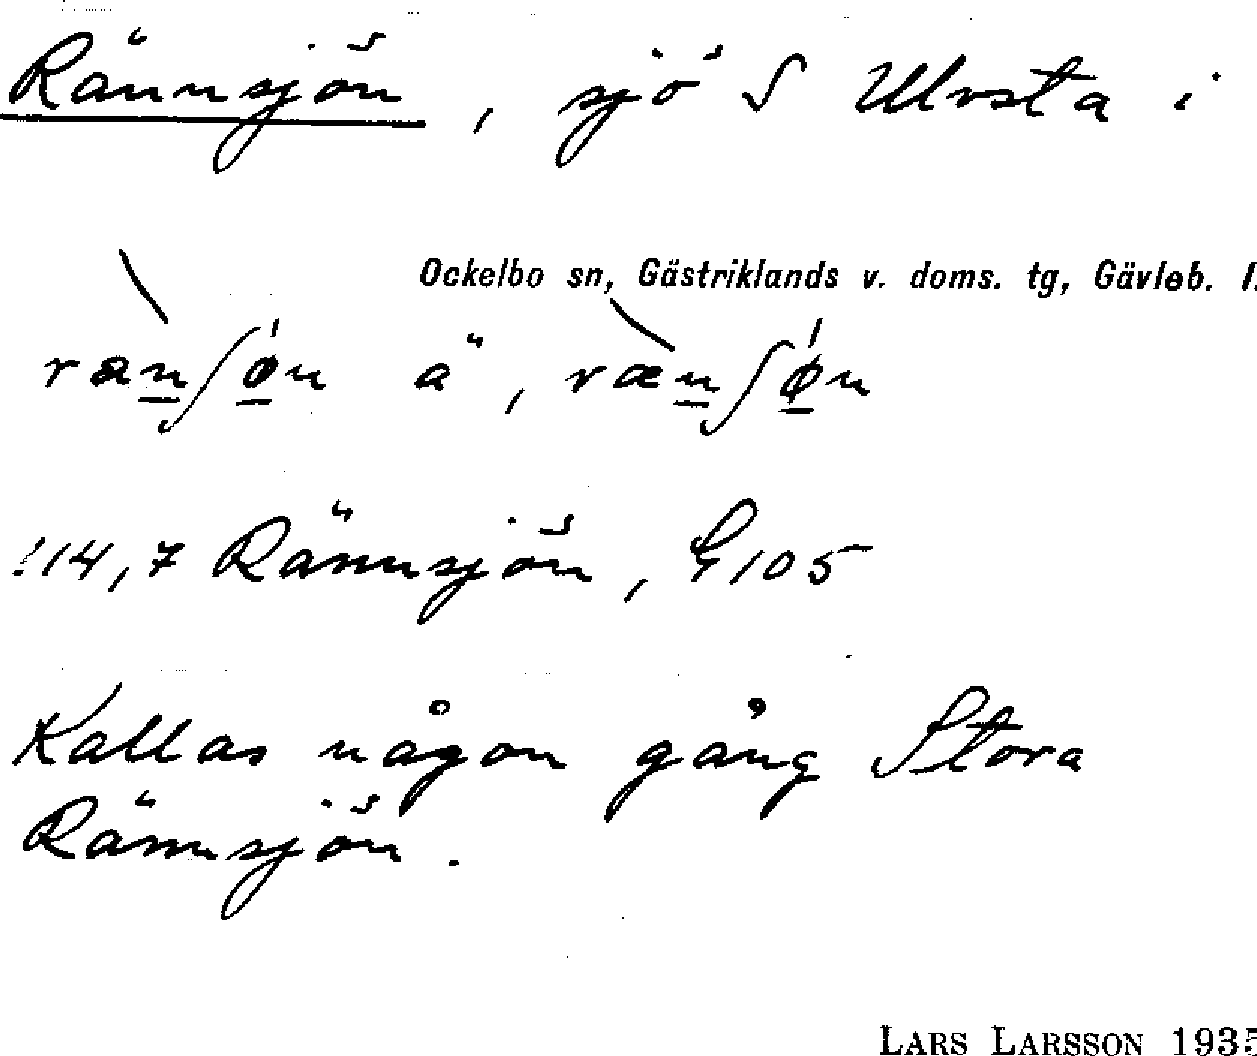 Rännsjön, sjö S Ulvsta i
Ockelbo sn, Gästriklands v. doms. tg, Gävleb. l.
rænʃøn ä, rænʃøn
114,7 Rännsjön, G105
Kallas någon gång Stora
Rännsjön.
LARS LARSSON 1935